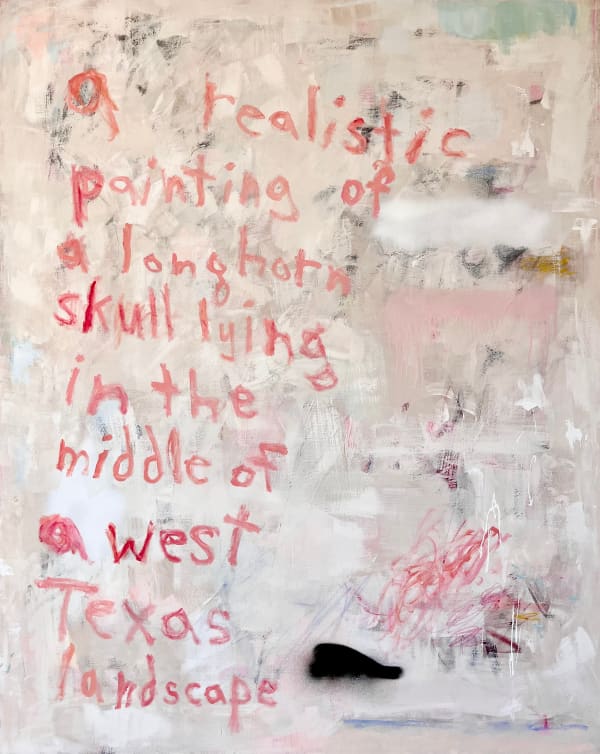 a realistic
painting of
a longhorn
skull lying
in the
middle of
a west
Texas
landscape